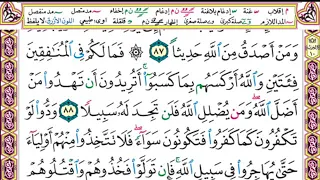 وَمَنْ أَصْدَقُ مِنَ ٱللَّهِ حَدِيثًا ٨٧ ۞ فَمَا لَكُمْ فِى ٱلْمُنَٰفِقِينَ
فِئَتَيْنِ وَٱللَّهُ أَرْكَسَهُم بِمَا كَسَبُوٓا۟ ۚ أَتُرِيدُونَ أَن تَهْدُوا۟ مَنْ
أَضَلَّ ٱللَّهُ ۖ وَمَن يُضْلِلِ ٱللَّهُ فَلَن تَجِدَ لَهُۥ سَبِيلًا ٨٨ وَدُّوا۟ لَوْ
تَكْفُرُونَ كَمَا كَفَرُوا۟ فَتَكُونُونَ سَوَآءً ۖ فَلَا تَتَّخِذُوا۟ مِنْهُمْ أَوْلِيَآءَ
حَتَّىٰ يُهَاجِرُوا۟ فِى سَبِيلِ ٱللَّهِ ۚ فَإِن تَوَلَّوْا۟ فَخُذُوهُمْ وَٱقْتُلُوهُمْ